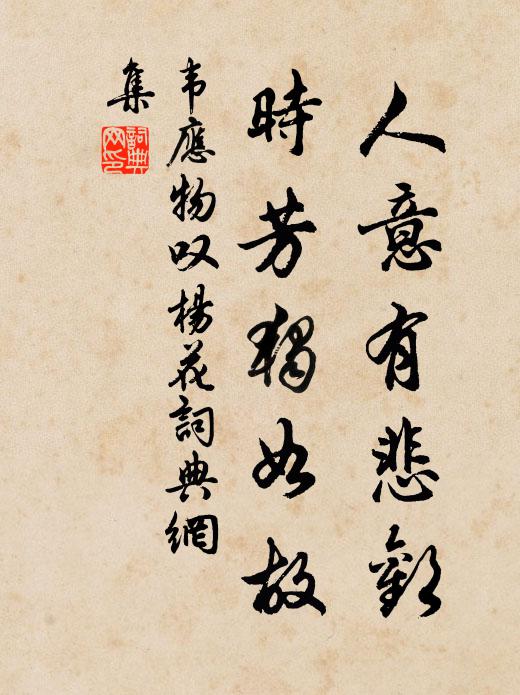 人意有悲歡
時芳獨如故
韦應物叹楊花詞典網
集
詞典網印